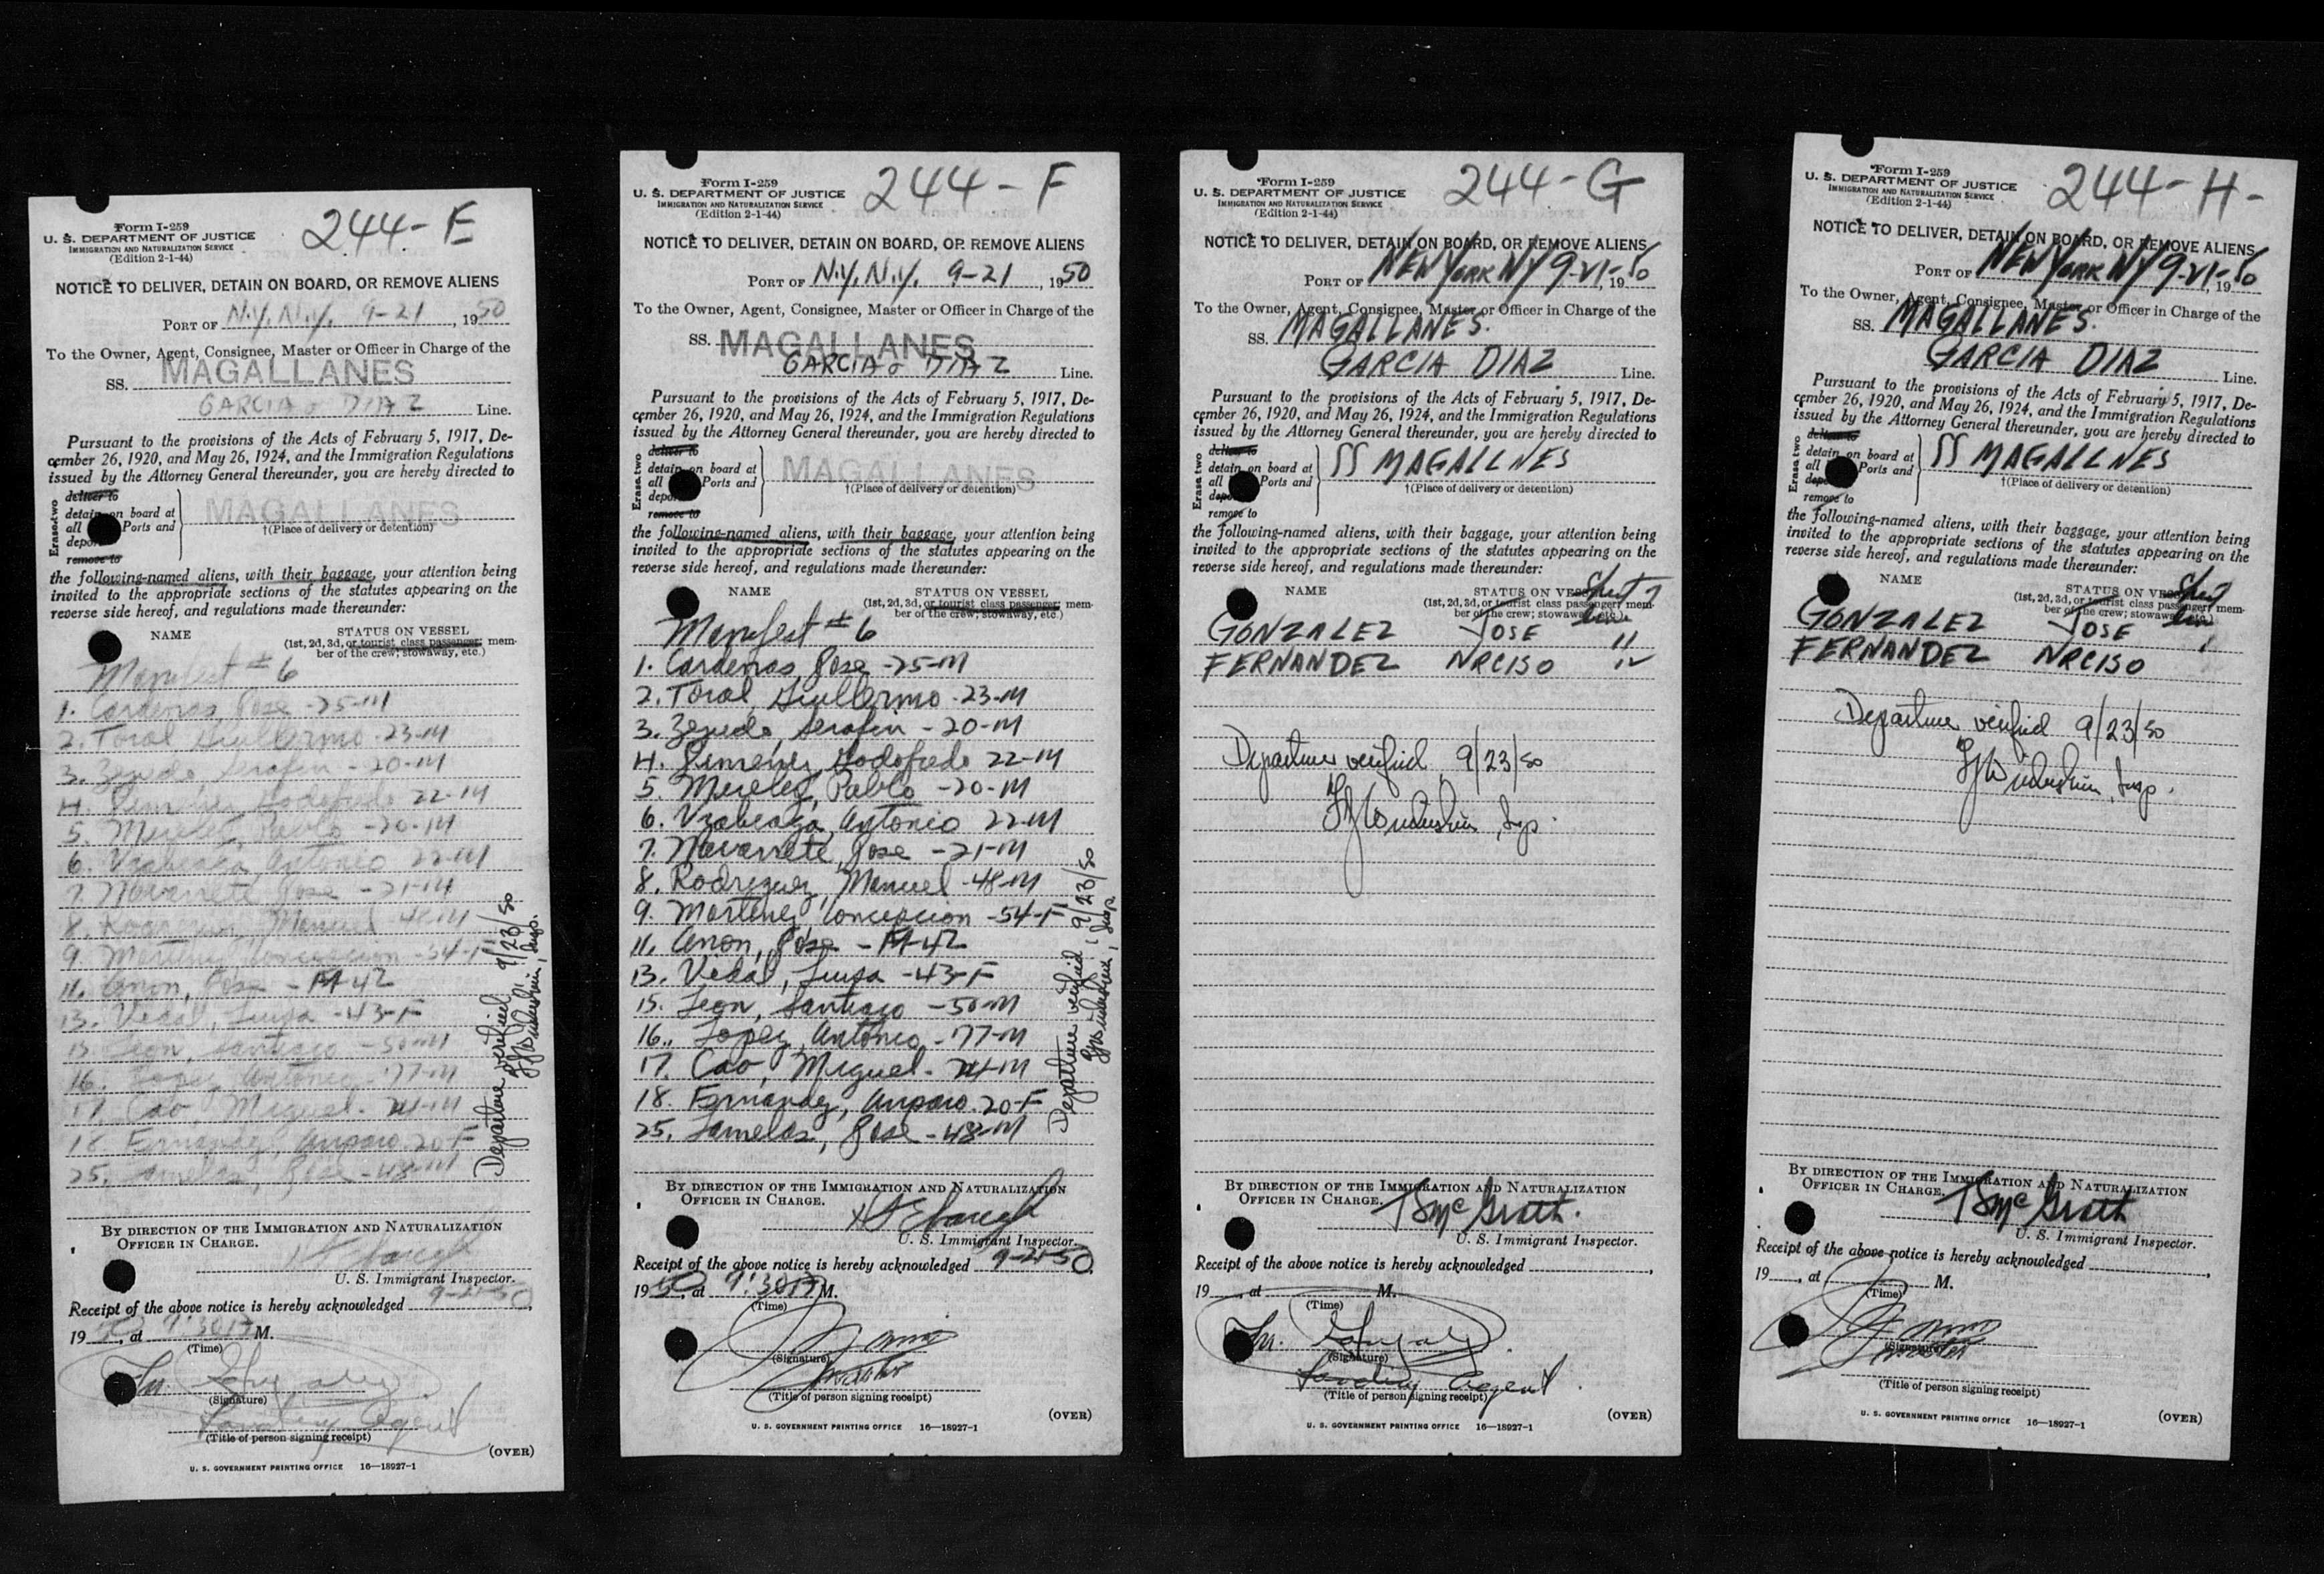 Form I-259
U. S. DEPARTMENT OF JUSTICE
IMMIGRATION AND NATURALIZATION SERVICE
(Edition 2-1-44)
244-E
NOTICE TO DELIVER, DETAIN ON BOARD, OR REMOVE ALIENS
PORT OF N.Y., N.Y. 9-21, 1950
To the Owner, Agent, Consignee, Master or Officer in Charge of the
SS. MAGALLANES
GARCIA & DIAZ Line.
Pursuant to the provisions of the Acts of February 5, 1917, De-
cember 26, 1920, and May 26, 1924, and the Immigration Regulations
issued by the Attorney General thereunder, you are hereby directed to
Erase two
deliver to
detain on board at
all Ports and
remove to
MAGALLANES
†(Place of delivery or detention)
the following-named aliens, with their baggage, your attention being
invited to the appropriate sections of the statutes appearing on the
reverse side hereof, and regulations made thereunder:
NAME
STATUS ON VESSEL
(1st, 2d, 3d, or tourist class passenger; mem-
ber of the crew; stowaway, etc.)
Manifest #6
1. Cardenas, Jose -25-M
2. Toral Guillermo -23-M
3. Serafin -20-M
4. Godofredo 22-M
5. Pablo -20-M
6. Antonio 22-M
7. Navarrete, Jose -21-M
8. Rodriguez, Manuel -48-M
9. Martinez Concepcion -54-F
11. Anon, Jose - M-42
13. Vidal, Luisa -43-F
15. Leon, Santiago -50-M
16. Lopez, Antonio -77-M
17. Cao, Miguel -
18. Fernandez, Amparo 20-F
25. Lamelas, Jose -48-M
Departure verified 9/23/50
, Insp.
BY DIRECTION OF THE IMMIGRATION AND NATURALIZATION
OFFICER IN CHARGE.
U. S. Immigrant Inspector.
Receipt of the above notice is hereby acknowledged 9-21-50,
1950, at 9:30 P M.
(Time)
(Signature)
Landing Agent
(Title of person signing receipt)
(OVER)
U. S. GOVERNMENT PRINTING OFFICE 16—18927-1
Form I-259
U. S. DEPARTMENT OF JUSTICE
IMMIGRATION AND NATURALIZATION SERVICE
(Edition 2-1-44)
244-F
NOTICE TO DELIVER, DETAIN ON BOARD, OR REMOVE ALIENS
PORT OF N.Y., N.Y. 9-21, 1950
To the Owner, Agent, Consignee, Master or Officer in Charge of the
SS. MAGALLANES
GARCIA & DIAZ Line.
Pursuant to the provisions of the Acts of February 5, 1917, De-
cember 26, 1920, and May 26, 1924, and the Immigration Regulations
issued by the Attorney General thereunder, you are hereby directed to
Erase two
deliver to
detain on board at
all Ports and
remove to
MAGALLANES
†(Place of delivery or detention)
the following-named aliens, with their baggage, your attention being
invited to the appropriate sections of the statutes appearing on the
reverse side hereof, and regulations made thereunder:
NAME
STATUS ON VESSEL
(1st, 2d, 3d, or tourist class passenger; mem-
ber of the crew; stowaway, etc.)
Manifest #6
1. Cardenas, Jose -25-M
2. Toral, Guillermo -23-M
3. Serafin -20-M
4. Godofredo 22-M
5. Pablo -20-M
6. Antonio 22-M
7. Navarrete, Jose -21-M
8. Rodriguez, Manuel -48-M
9. Martinez Concepcion -54-F
11. Anon, Jose - M-42
13. Vidal, Luisa -43-F
15. Leon, Santiago -50-M
16. Lopez, Antonio -77-M
17. Cao, Miguel -
18. Fernandez, Amparo 20-F
25. Lamelas, Jose -48-M
Departure verified 9/23/50
, Insp
BY DIRECTION OF THE IMMIGRATION AND NATURALIZATION
OFFICER IN CHARGE.
U. S. Immigrant Inspector.
Receipt of the above notice is hereby acknowledged 9-21-50,
1950, at 9:30 P M.
(Time)
(Signature)
Master
(Title of person signing receipt)
(OVER)
U. S. GOVERNMENT PRINTING OFFICE 16—18927-1
Form I-259
U. S. DEPARTMENT OF JUSTICE
IMMIGRATION AND NATURALIZATION SERVICE
(Edition 2-1-44)
244-G
NOTICE TO DELIVER, DETAIN ON BOARD, OR REMOVE ALIENS
PORT OF NEW YORK NY 9-21-, 1950
To the Owner, Agent, Consignee, Master or Officer in Charge of the
SS. MAGALLANES.
GARCIA DIAZ Line.
Pursuant to the provisions of the Acts of February 5, 1917, De-
cember 26, 1920, and May 26, 1924, and the Immigration Regulations
issued by the Attorney General thereunder, you are hereby directed to
Erase two
deliver to
detain on board at
all Ports and
remove to
SS MAGALLNES
†(Place of delivery or detention)
the following-named aliens, with their baggage, your attention being
invited to the appropriate sections of the statutes appearing on the
reverse side hereof, and regulations made thereunder:
NAME
STATUS ON VESSEL
(1st, 2d, 3d, or tourist class passenger; mem-
ber of the crew; stowaway, etc.)
Sheet 7
line
GONZALEZ JOSE 11
FERNANDEZ NRCISO 12
Departure verified 9/23/50
, Insp.
BY DIRECTION OF THE IMMIGRATION AND NATURALIZATION
OFFICER IN CHARGE.
McGrath.
U. S. Immigrant Inspector.
Receipt of the above notice is hereby acknowledged ,
19 , at M.
(Time)
(Signature)
Landing Agent.
(Title of person signing receipt)
(OVER)
U. S. GOVERNMENT PRINTING OFFICE 16—18927-1
Form I-259
U. S. DEPARTMENT OF JUSTICE
IMMIGRATION AND NATURALIZATION SERVICE
(Edition 2-1-44)
244-H-
NOTICE TO DELIVER, DETAIN ON BOARD, OR REMOVE ALIENS
PORT OF NEW YORK NY 9-21-, 1950
To the Owner, Agent, Consignee, Master or Officer in Charge of the
SS. MAGALLANES.
GARCIA DIAZ Line.
Pursuant to the provisions of the Acts of February 5, 1917, De-
cember 26, 1920, and May 26, 1924, and the Immigration Regulations
issued by the Attorney General thereunder, you are hereby directed to
Erase two
deliver to
detain on board at
all Ports and
remove to
SS MAGALLNES
†(Place of delivery or detention)
the following-named aliens, with their baggage, your attention being
invited to the appropriate sections of the statutes appearing on the
reverse side hereof, and regulations made thereunder:
NAME
STATUS ON VESSEL
(1st, 2d, 3d, or tourist class passenger; mem-
ber of the crew; stowaway, etc.)
Sheet
line
GONZALEZ JOSE
FERNANDEZ NRCISO
Departure verified 9/23/50
, Insp.
BY DIRECTION OF THE IMMIGRATION AND NATURALIZATION
OFFICER IN CHARGE.
McGrath
U. S. Immigrant Inspector.
Receipt of the above notice is hereby acknowledged ,
19 , at M.
(Time)
(Signature)
Master
(Title of person signing receipt)
(OVER)
U. S. GOVERNMENT PRINTING OFFICE 16—18927-1